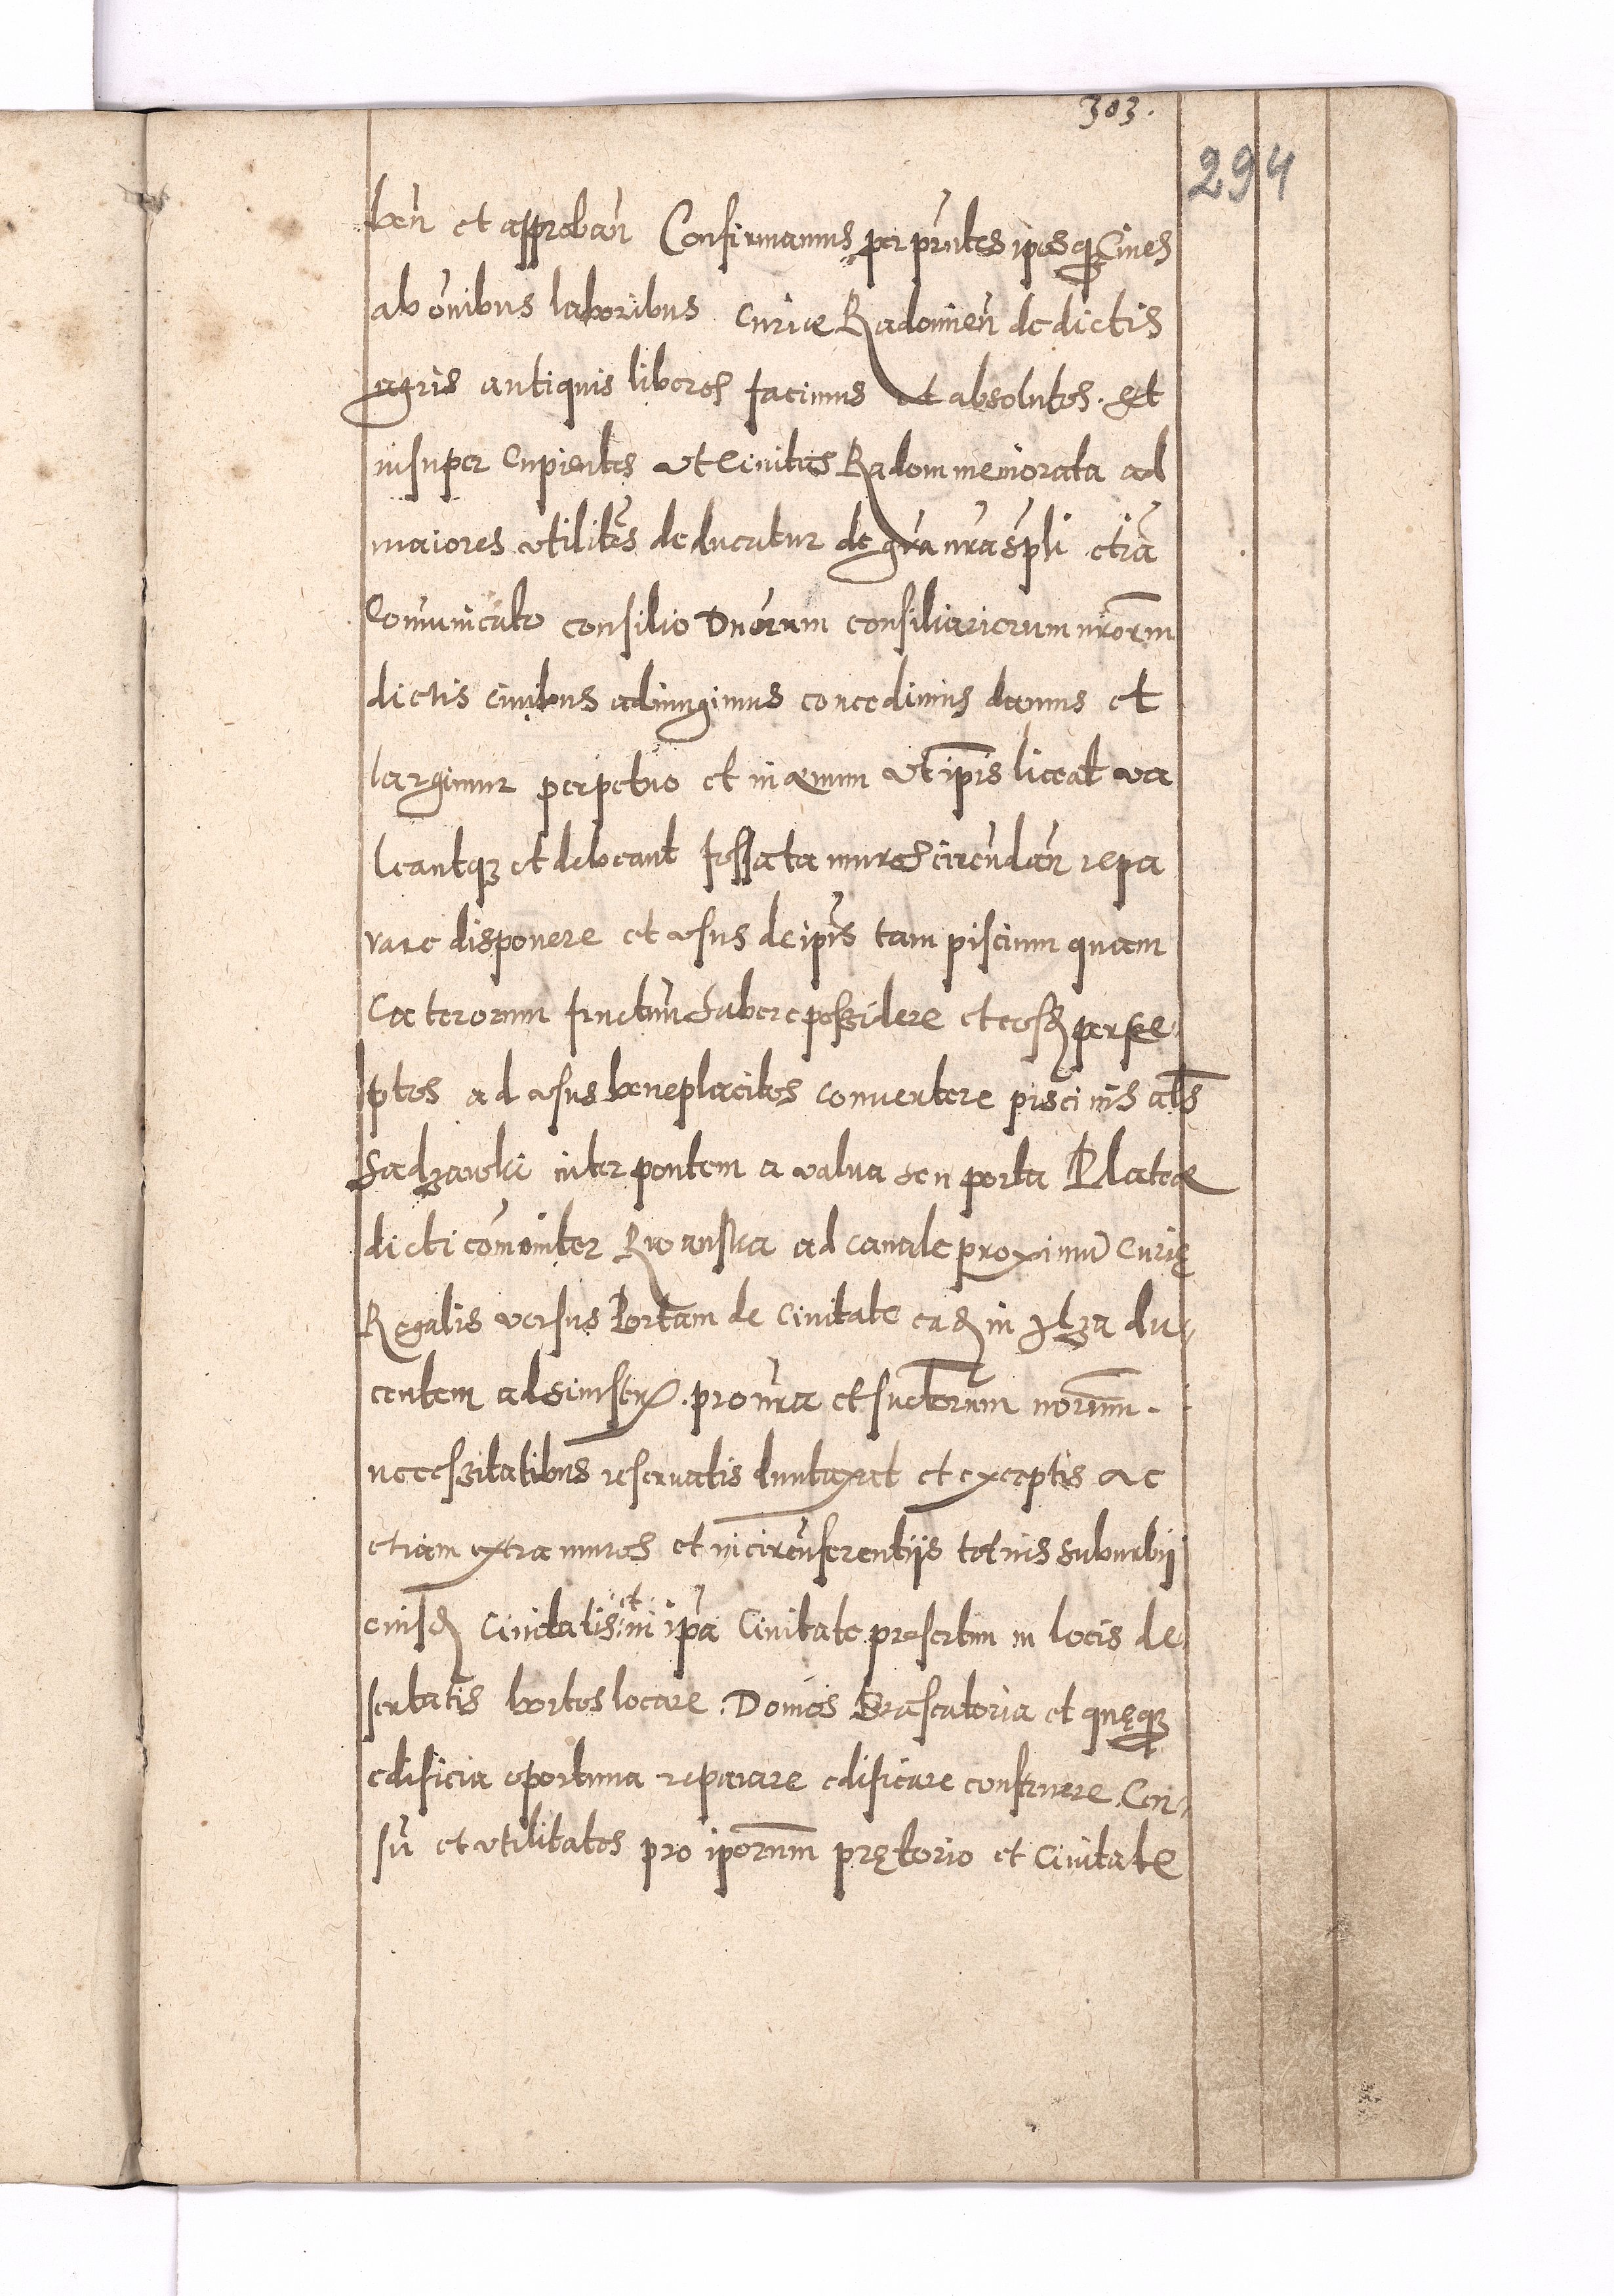 303.
294
ben̄ et approban̄ Confirmamus per pn̄tes ipos q̄ Ciues
ab om̄ibus laboribus Curiæ Radomien̄ de dictis
agris antiquis liberos facimus et absolutos. et
insuper Cupientes vt Ciuitas Radom memorata ad
maiores vtilitēs deducatur de gr̄a nr̄a sp̄li etiā
Com̄unicato consilio Dn̄orum consiliariorum nr̄orm̄
dictis ciuibus adiungimus concedimus damus et
largimur perpetuo et in æuum vt ip̄is liceat va
leantq; et debeant fossata muros circūdan̄ repa
rare disponere et vsus de ip̄is tam piscium quam
Cæterorum fructuum habere possidere et eosd̄ perce-
ptos ad vsus beneplacitos conuertere piscinis als̄
Sadzawki inter pontem a valua seu porta Plateæ
dicti com̄uniter Rwanska ad canale proximū Curię
Regalis versus Portam de Ciuitate ead̄ in Ilza du-
centem ad Sinistrā. pro nr̄a et suc̄torum nr̄orum.
necessitatibus reseruatis duntaxat et exceptis ac
etiam extra muros et in circūferentijs totius suburbij
eiusd̄ Ciuitatis et in ip̄a Ciuitate præsertim in locis de-
sertatis hortos locare. Domos Brascatoria et quęq;
edificia oportuna reparare edificare construere Cen-
sū et vtilitates pro ip̄orum prętorio et Ciuitate